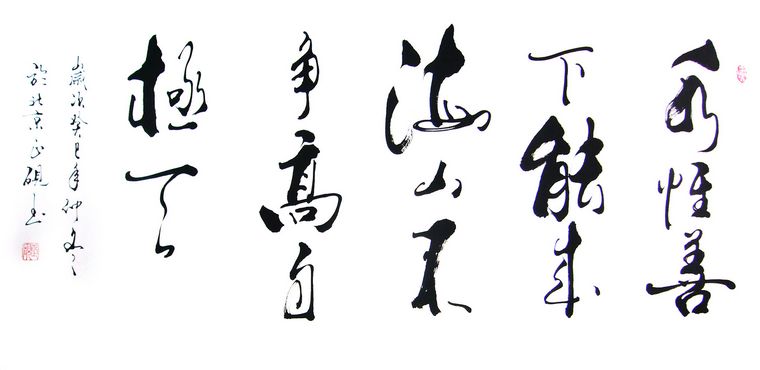 水惟善
下能成
海山不
争高自
極天
歲次癸巳年仲冬
於北京